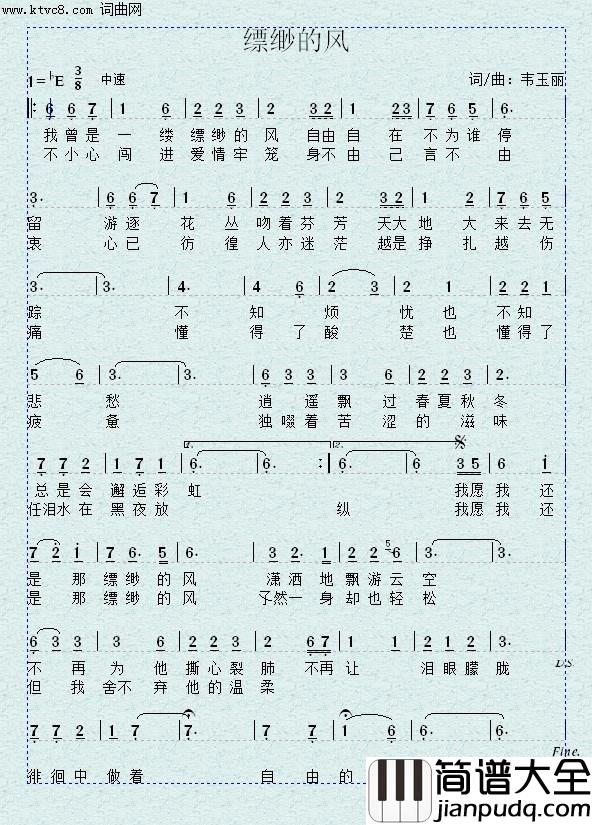 www.ktvc8.com 词曲网
缥缈的风
1=♭E 3/8 中速 词/曲：韦玉丽
6 6 7 1 6 2 2 3 2 32 1 23 7 6 5 6.
我曾是一缕缥缈的风自由自在不为谁停
不小心闯进爱情牢笼身不由己言不由
3. 6 6 7 1 6 2 2 3 2 32 1 2 7 6 5
留游逐花丛吻着芬芳天大地大来去无
衷心已彷徨人亦迷茫越是挣扎越伤
3. 3. 4. 4 6 2 3 2 1 2 2 1
踪不知烦忧也不知
痛懂得了酸楚也懂得了
5 6 3. 3. 6 3 3 3 6 2 2 3 2.
悲愁逍遥飘过春夏秋冬
疲惫独啜着苦涩的滋味
7 7 2 1 7 1 6. 6. 6. 6 35 6 1
总是会邂逅彩虹我愿我还
任泪水在黑夜放纵我愿我还
7 2 1 7 6 5 6. 3 2. 1 2 2 5 6 3. 3.
是那缥缈的风潇洒地飘游云空
是那缥缈的风孑然一身却也轻松
6 3 3 3 6 2 2 3 2 67 1 1 2 1 2 3.
不再为他撕心裂肺不再让泪眼朦胧
但我舍不弃他的温柔
D.S.
7 7 2 1 7 7. 7. 7 7 1 6 6.
徘徊中做着自由的
Fine.
简谱大全
jianpudq.com